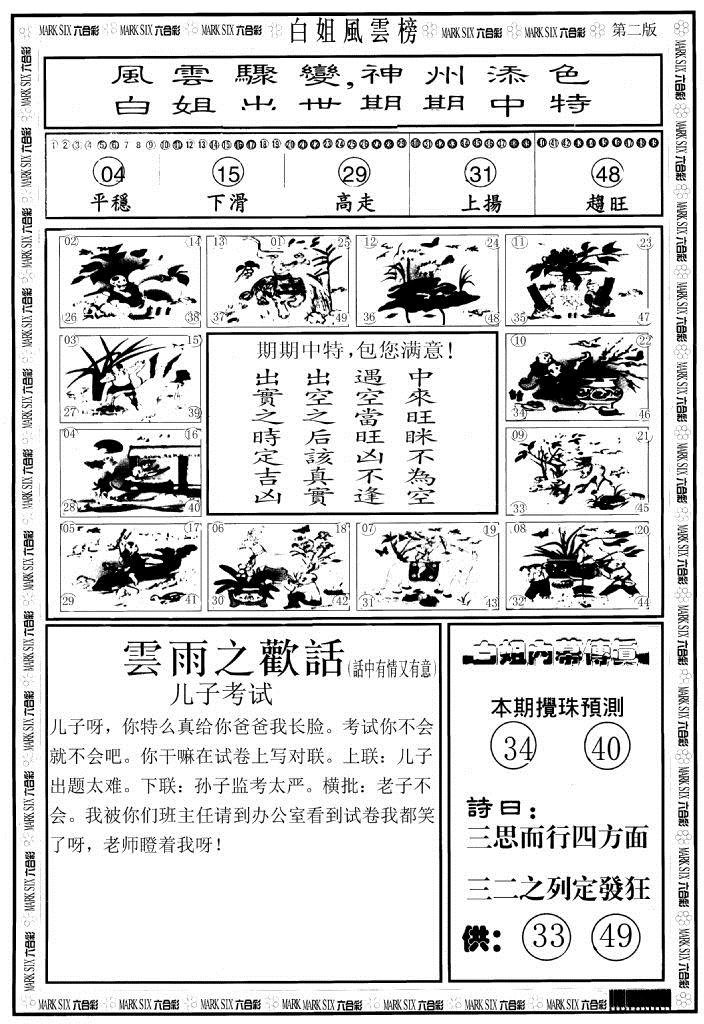 MARK SIX 六合彩 MARK SIX 六合彩 MARK SIX 六合彩 白姐風雲榜 MARK SIX 六合彩 MARK SIX 六合彩 第二版
風雲驟變,神州添色
白姐出世期期中特
04 15 29 31 48
平穩 下滑 高走 上揚 趨旺
02 14 13 01 25 12 24 11 23
26 38 37 49 36 48 35 47
03 15
27 39
04 16
28 40
期期中特,包您满意!
中來旺眯不為空
遇空當旺凶不逢
出空之后該真實
出實之時定吉凶
10 22
34 46
09 21
33 45
05 17 06 18 07 19 08 20
29 41 30 42 31 43 32 44
雲雨之歡話(話中有情又有意)
儿子考试
儿子呀，你特么真给你爸爸我长脸。考试你不会
就不会吧。你干嘛在试卷上写对联。上联：儿子
出题太难。下联：孙子监考太严。横批：老子不
会。我被你们班主任请到办公室看到试卷我都笑
了呀，老师瞪着我呀！
白姐內幕傳真
本期攪珠預測
34 40
詩曰：
三思而行四方面
三二之列定發狂
供：33 49
MARK SIX 六合彩 MARK SIX 六合彩 MARK SIX 六合彩 MARK SIX 六合彩 MARK SIX 六合彩 MARK SIX 六合彩 MARK SIX 六合彩